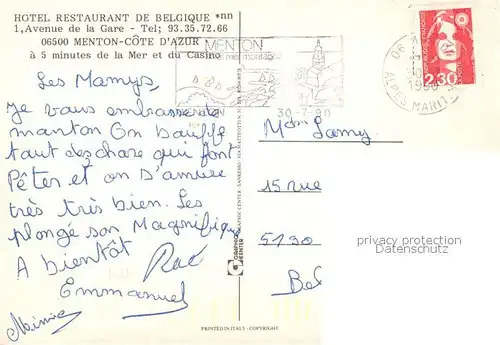 HOTEL RESTAURANT DE BELGIQUE *nn
1,Avenue de la Gare - Tel; 93.35.72.66
06500 MENTON-CÔTE D'AZUR
à 5 minutes de la Mer et du Casino
MENTON
30-7-90
2,30
06
ALPES MARIT
Les Mamys
Je vous embrasse de
manton On bouffe
tout des chose qui font
Pêter et on s'amuse
très très bien. Les
plongé son Magnifique
A bientôt
Emmanuel
Mimie
Mdm Lamy
15 rue
5130
Bel
privacy protection
Datenschutz
GRAPHIC
CENTER
PRINTED IN ITALY - COPYRIGHT